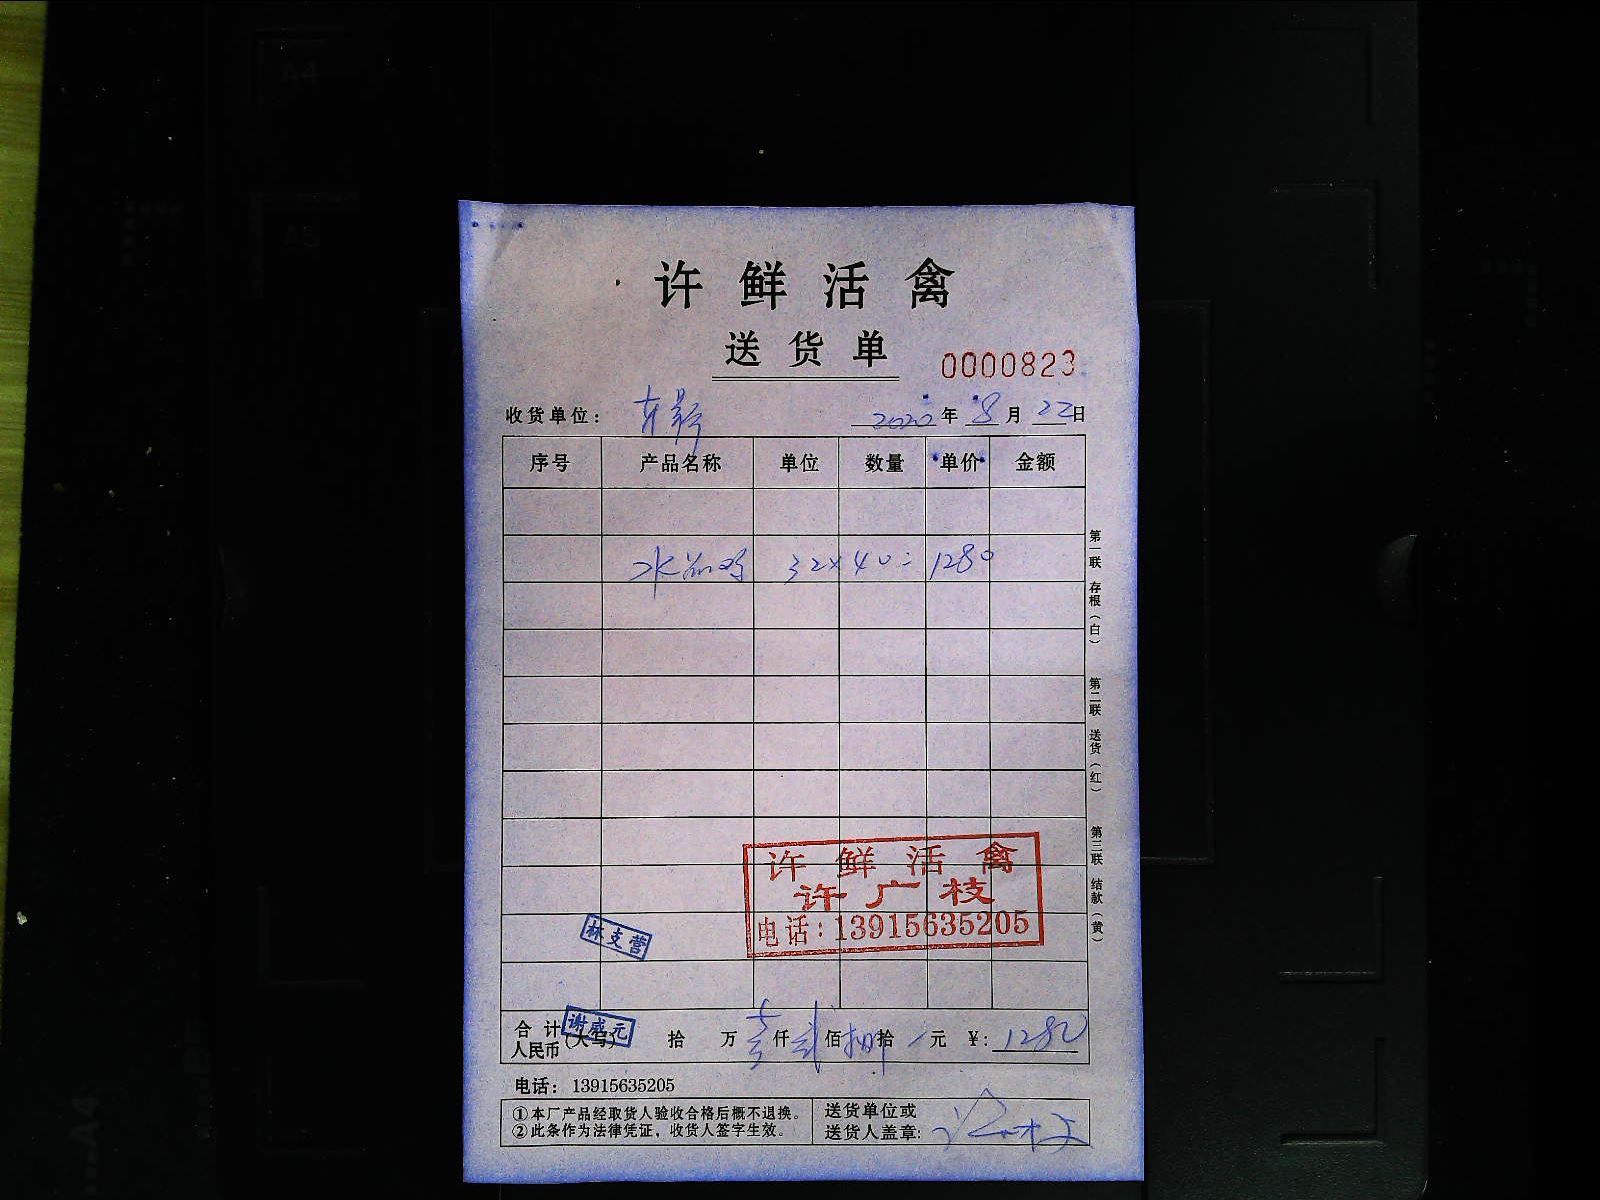 许鲜活禽
送货单
0000823
收货单位： 2020年 8月 22日
序号 产品名称 单位 数量 单价 金额
32×40=1280
第一联 存根（白）
第二联 送货（红）
第三联 结款（黄）
许鲜活禽
许广枝
电话：13915635205
林支营
谢盛元
合计 人民币 (大写) 拾 万 壹仟 贰佰 捌拾 元 ¥: 1280
电话：13915635205
①本厂产品经取货人验收合格后概不退换。
②此条作为法律凭证，收货人签字生效。
送货单位或
送货人盖章: